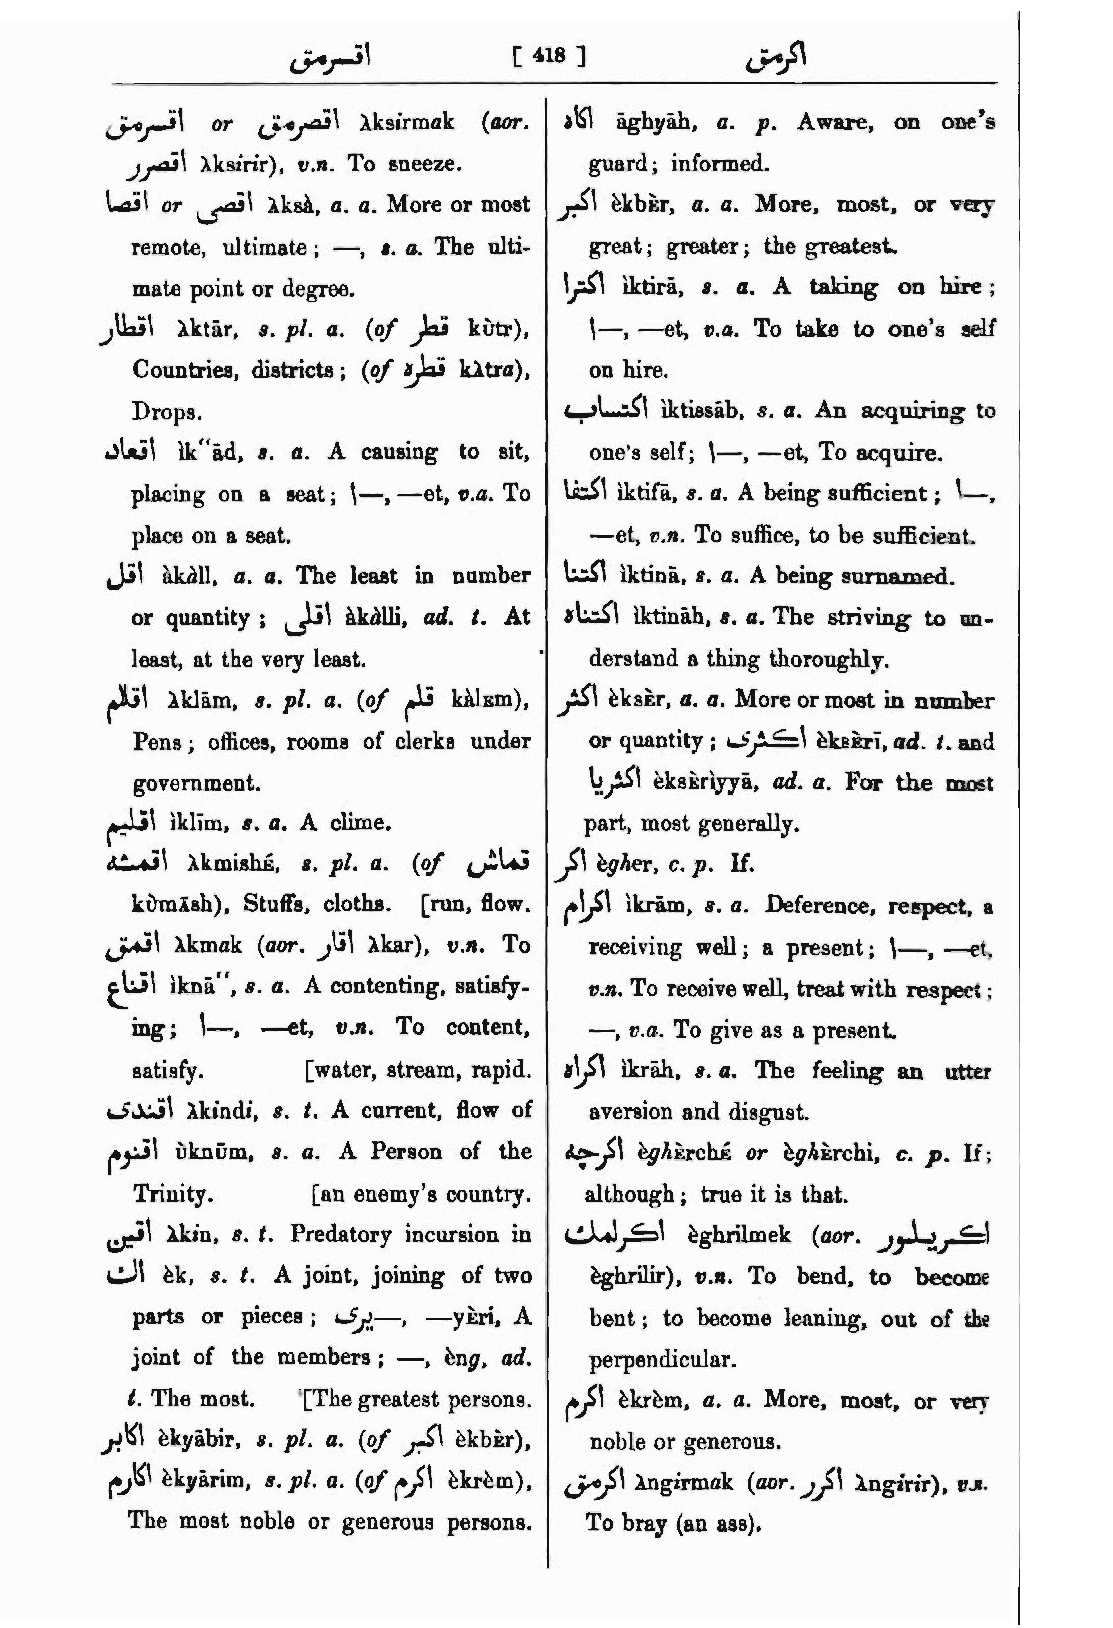 اقسرمق [ 418 ] اكرمق
اقسرمق or اقصرمق λksirmak (aor.
اقصرر λksirir), v.n. To sneeze.
اقصا or اقصى λksà, a. a. More or most
remote, ultimate; —, s. a. The ulti-
mate point or degree.
اقطار λktār, s. pl. a. (of قطر kùtr),
Countries, districts; (of قطره kλtra),
Drops.
اقعاد ìk“ād, s. a. A causing to sit,
placing on a seat; ا—, —et, v.a. To
place on a seat.
اقل àkàll, a. a. The least in number
or quantity; اقلى àkàlli, ad. t. At
least, at the very least.
اقلام λklām, s. pl. a. (of قلم kàlᴇm),
Pens; offices, rooms of clerks under
government.
اقليم ìklīm, s. a. A clime.
اقمشه λkmishé, s. pl. a. (of قماش
kùmāsh), Stuffs, cloths. [run, flow.
اقمق λkmak (aor. اقار λkar), v.n. To
اقناع ìknā“, s. a. A contenting, satisfy-
ing; ا—, —et, v.n. To content,
satisfy. [water, stream, rapid.
اقندى λkindi, s. t. A current, flow of
اقنوم ùknūm, s. a. A Person of the
Trinity. [an enemy's country.
اقين λkin, s. t. Predatory incursion in
اك èk, s. t. A joint, joining of two
parts or pieces; —يرى, —yèri, A
joint of the members; —, èng, ad.
t. The most. [The greatest persons.
اكابر èkyābir, s. pl. a. (of اكبر èkbèr),
اكارم èkyārim, s. pl. a. (of اكرم èkrèm),
The most noble or generous persons.
اكاه āghyāh, a. p. Aware, on one's
guard; informed.
اكبر èkbèr, a. a. More, most, or very
great; greater; the greatest.
اكترا ìktirā, s. a. A taking on hire;
ا—, —et, v.a. To take to one's self
on hire.
اكتساب ìktissāb, s. a. An acquiring to
one's self; ا—, —et, To acquire.
اكتفا ìktifā, s. a. A being sufficient; ا—,
—et, v.n. To suffice, to be sufficient.
اكتنا ìktinā, s. a. A being surnamed.
اكتناه ìktināh, s. a. The striving to un-
derstand a thing thoroughly.
اكثر èksèr, a. a. More or most in number
or quantity; اكثرى èksèrī, ad. t. and
اكثريا èksèrìyyā, ad. a. For the most
part, most generally.
اكر ègher, c. p. If.
اكرام ìkrām, s. a. Deference, respect, a
receiving well; a present; ا—, —et,
v.n. To receive well, treat with respect;
—, v.a. To give as a present.
اكراه ìkrāh, s. a. The feeling an utter
aversion and disgust.
اكرچه èghèrché or èghèrchi, c. p. If;
although; true it is that.
اكرلمك èghrilmek (aor. اكريلور
èghrilir), v.n. To bend, to become
bent; to become leaning, out of the
perpendicular.
اكرم èkrèm, a. a. More, most, or very
noble or generous.
اكرمق λngirmak (aor. اكرر λngirir), v.n.
To bray (an ass).